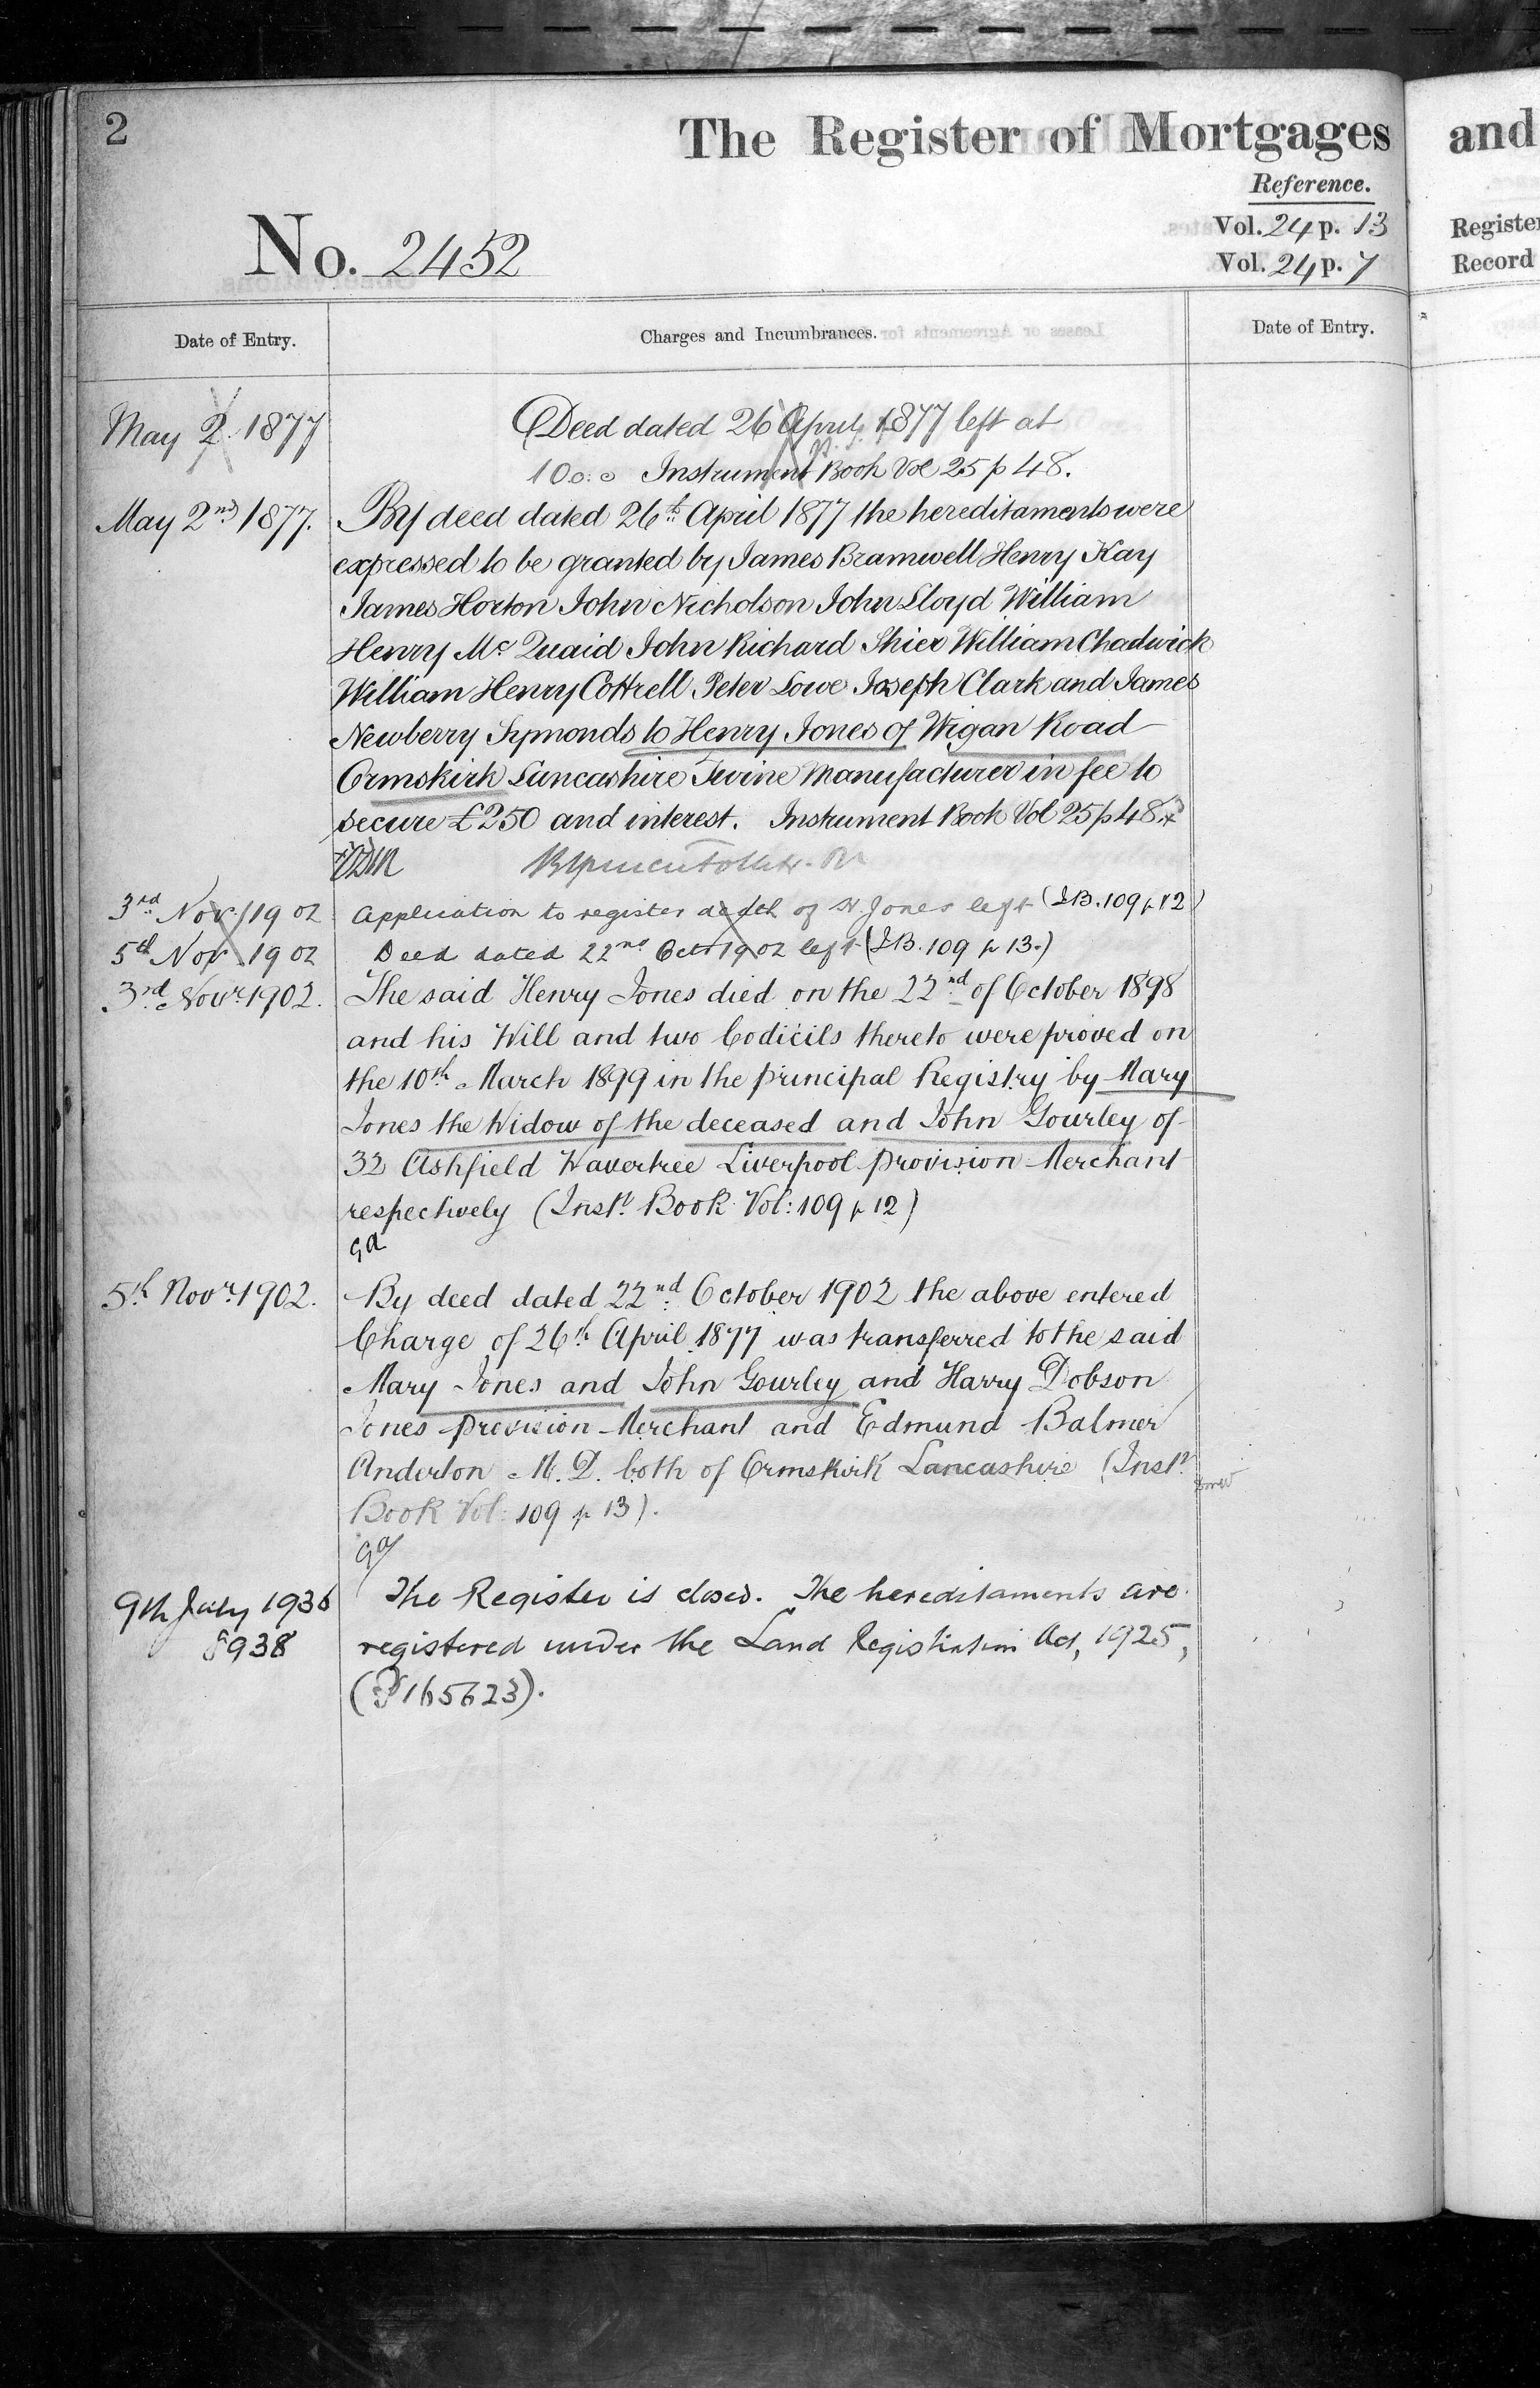 2
The Register of Mortgages
and
Reference.
Vol. 24 p. 13
Vol. 24 p. 7
No. 2452
Register
Record
Date of Entry.
Charges and Incumbrances.
Date of Entry.
May 2 1877
Deed dated 26 April 1877 left at
10.0.0 Instrument Book Vol 25 p 48.
May 2nd 1877.
By deed dated 26th April 1877 the hereditaments were
expressed to be granted by James Bramwell Henry Kay
James Horton John Nicholson John Lloyd William
Henry Mc Quaid John Richard Shier William Chadwick
William Henry Cottrell Peter Lowe Joseph Clark and James
Newberry Symonds to Henry Jones of Wigan Road
Ormskirk Lancashire Twine Manufacturer in fee to
secure £250 and interest. Instrument Book Vol 25 p 48.
3rd Nov. 1902
Application to register death of H. Jones left (I.B. 109 p 12)
5th Nov. 1902
Deed dated 22nd Oct 1902 left (I.B. 109 p 13.)
3rd Novr. 1902.
The said Henry Jones died on the 22nd of October 1898
and his Will and two Codicils thereto were proved on
the 10th March 1899 in the principal Registry by Mary
Jones the Widow of the deceased and John Gourley of
32 Ashfield Wavertree Liverpool provision Merchant
respectively (Inst. Book Vol: 109 p 12)
GA
5th Novr. 1902.
By deed dated 22nd October 1902 the above entered
Charge of 26th April 1877 was transferred to the said
Mary Jones and John Gourley and Harry Dobson
Jones provision Merchant and Edmund Balmer
Anderton M.D. both of Ormskirk Lancashire (Inst.
Book Vol: 109 p 13).
GA
9th July 1936
The Register is closed. The hereditaments are
8938
registered under the Land Registration Act, 1925,
(P165623).